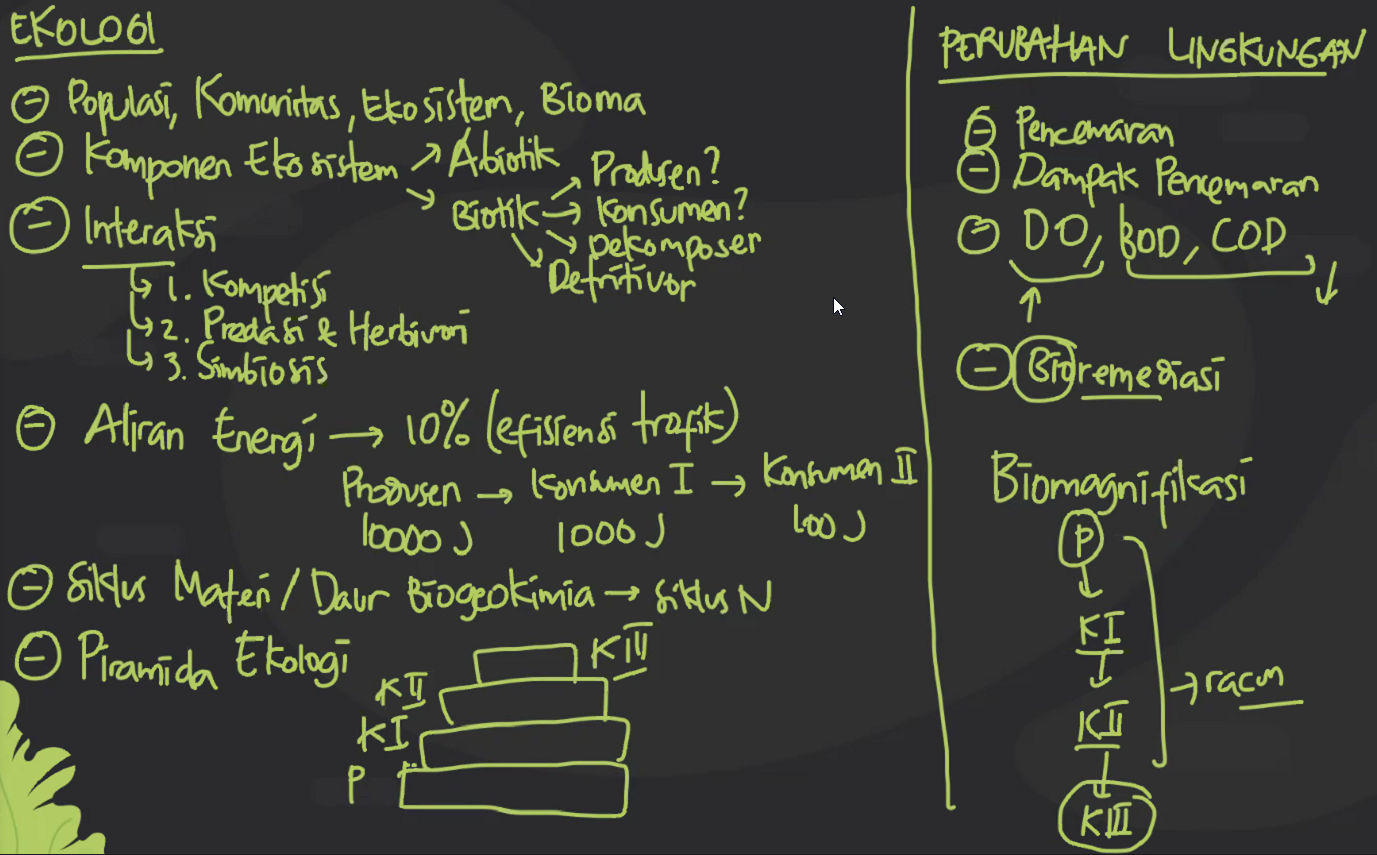 EKOLOGI
⊖ Populasi, Komunitas, Ekosistem, Bioma
⊖ Komponen Ekosistem → Abiotik
→ Biotik → Produsen?
→ Konsumen?
→ Dekomposer
→ Detritivor
⊖ Interaksi
1. Kompetisi
2. Predasi & Herbivori
3. Simbiosis
⊖ Aliran Energi → 10% (efisiensi trofik)
Produsen → Konsumen I → Konsumen II
10000 J 1000 J 100 J
⊖ Siklus Materi / Daur Biogeokimia → Siklus N
⊖ Piramida Ekologi
KIII
KII
KI
P
PERUBAHAN LINGKUNGAN
⊖ Pencemaran
⊖ Dampak Pencemaran
⊖ DO, BOD, COD
↑ ↓
⊖ Bioremediasi
Biomagnifikasi
P
↓
KI
↓
KII → racun
↓
KIII